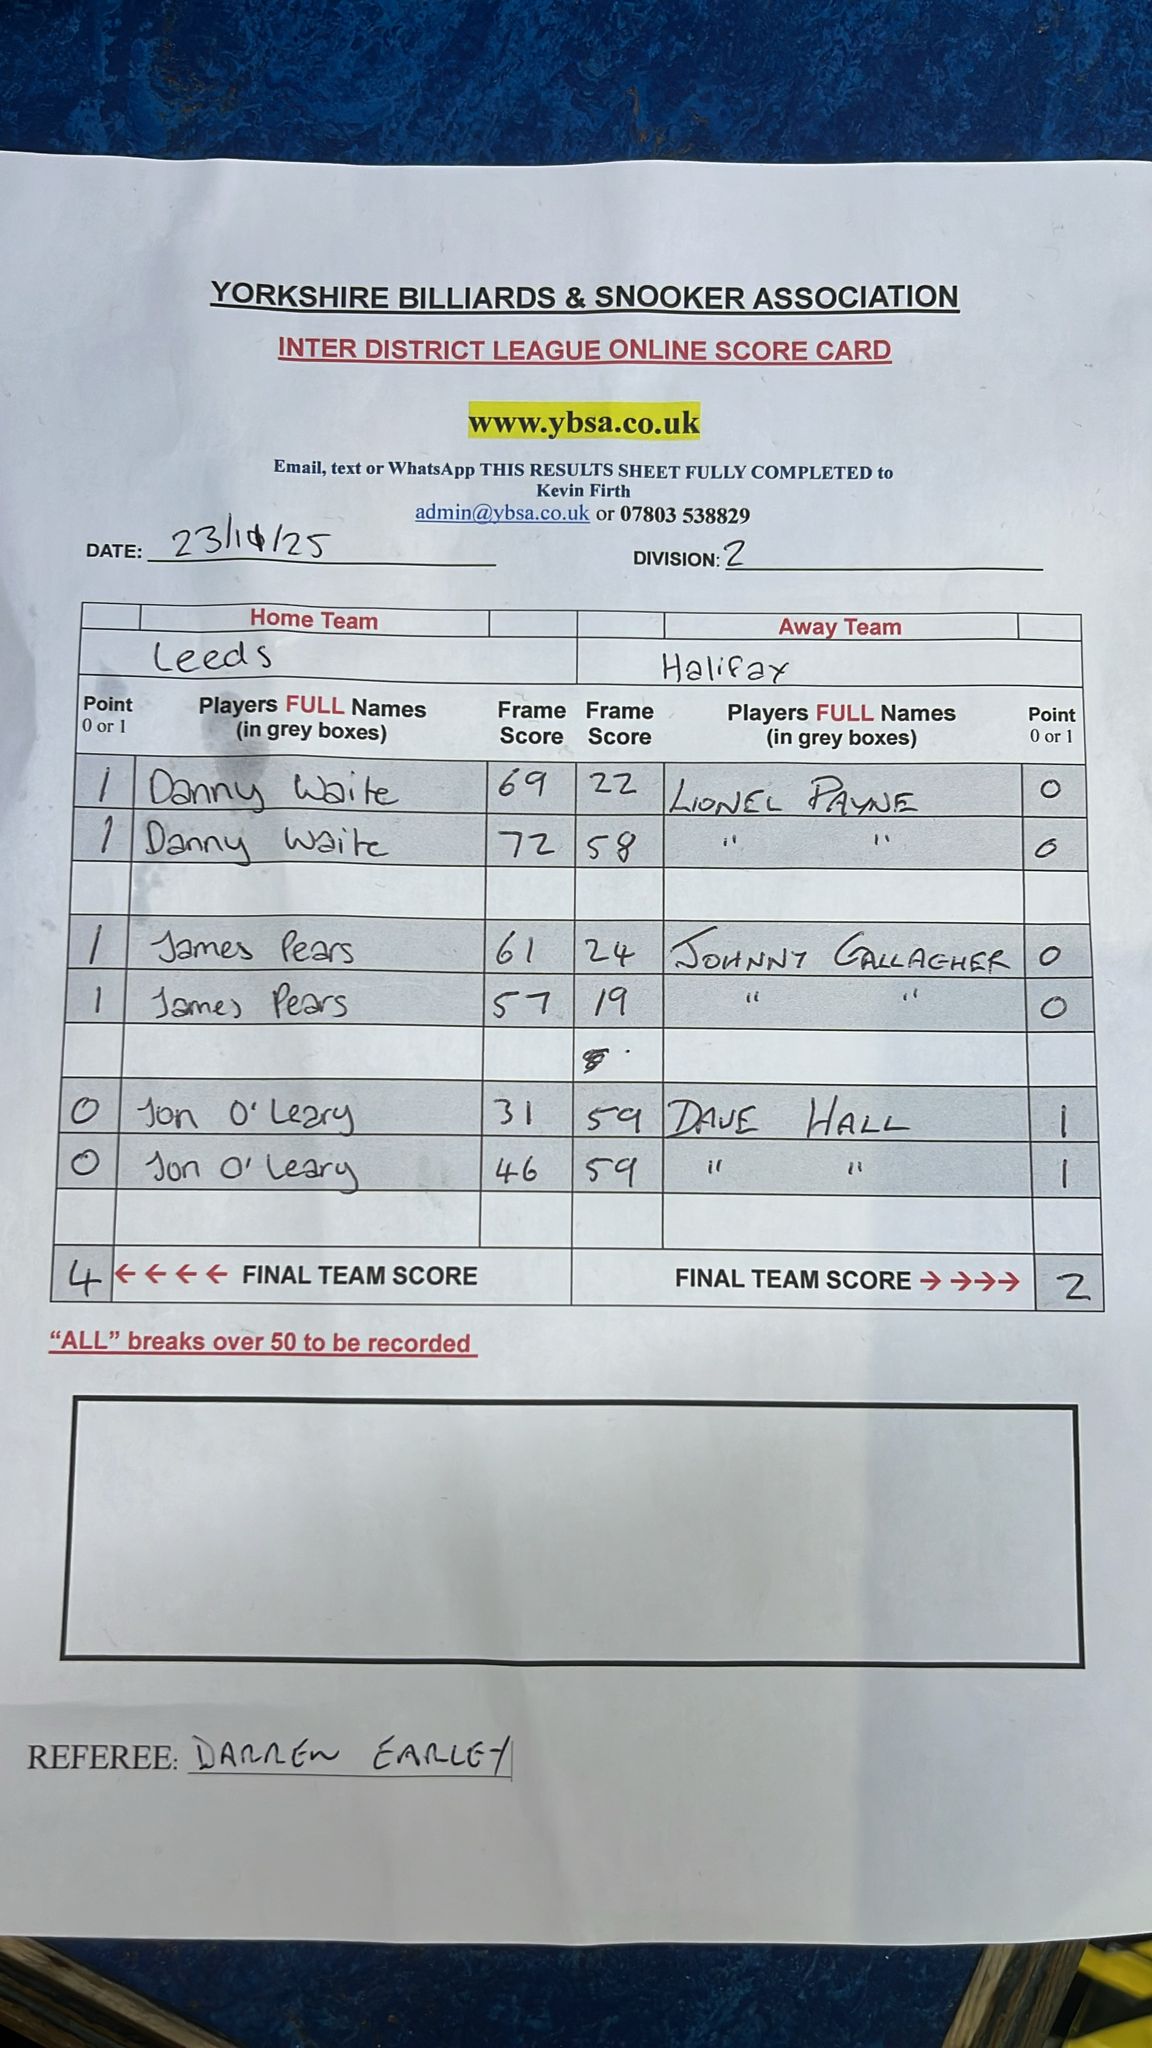 YORKSHIRE BILLIARDS & SNOOKER ASSOCIATION
INTER DISTRICT LEAGUE ONLINE SCORE CARD
www.ybsa.co.uk
Email, text or WhatsApp THIS RESULTS SHEET FULLY COMPLETED to
Kevin Firth
admin@ybsa.co.uk or 07803 538829
DATE: 23/10/25 DIVISION: 2
Home Team Away Team
Leeds Halifax
Point Players FULL Names Frame Frame Players FULL Names Point
0 or 1 (in grey boxes) Score Score (in grey boxes) 0 or 1
1 Danny Waite 69 22 LIONEL PAYNE 0
1 Danny Waite 72 58 " " 0
1 James Pears 61 24 JOHNNY GALLAGHER 0
1 James Pears 57 19 " " 0
0 Jon O'Leary 31 59 DAVE HALL 1
0 Jon O'Leary 46 59 " " 1
4 ←←←← FINAL TEAM SCORE FINAL TEAM SCORE →→→→ 2
"ALL" breaks over 50 to be recorded
REFEREE: DARREN EARLEY